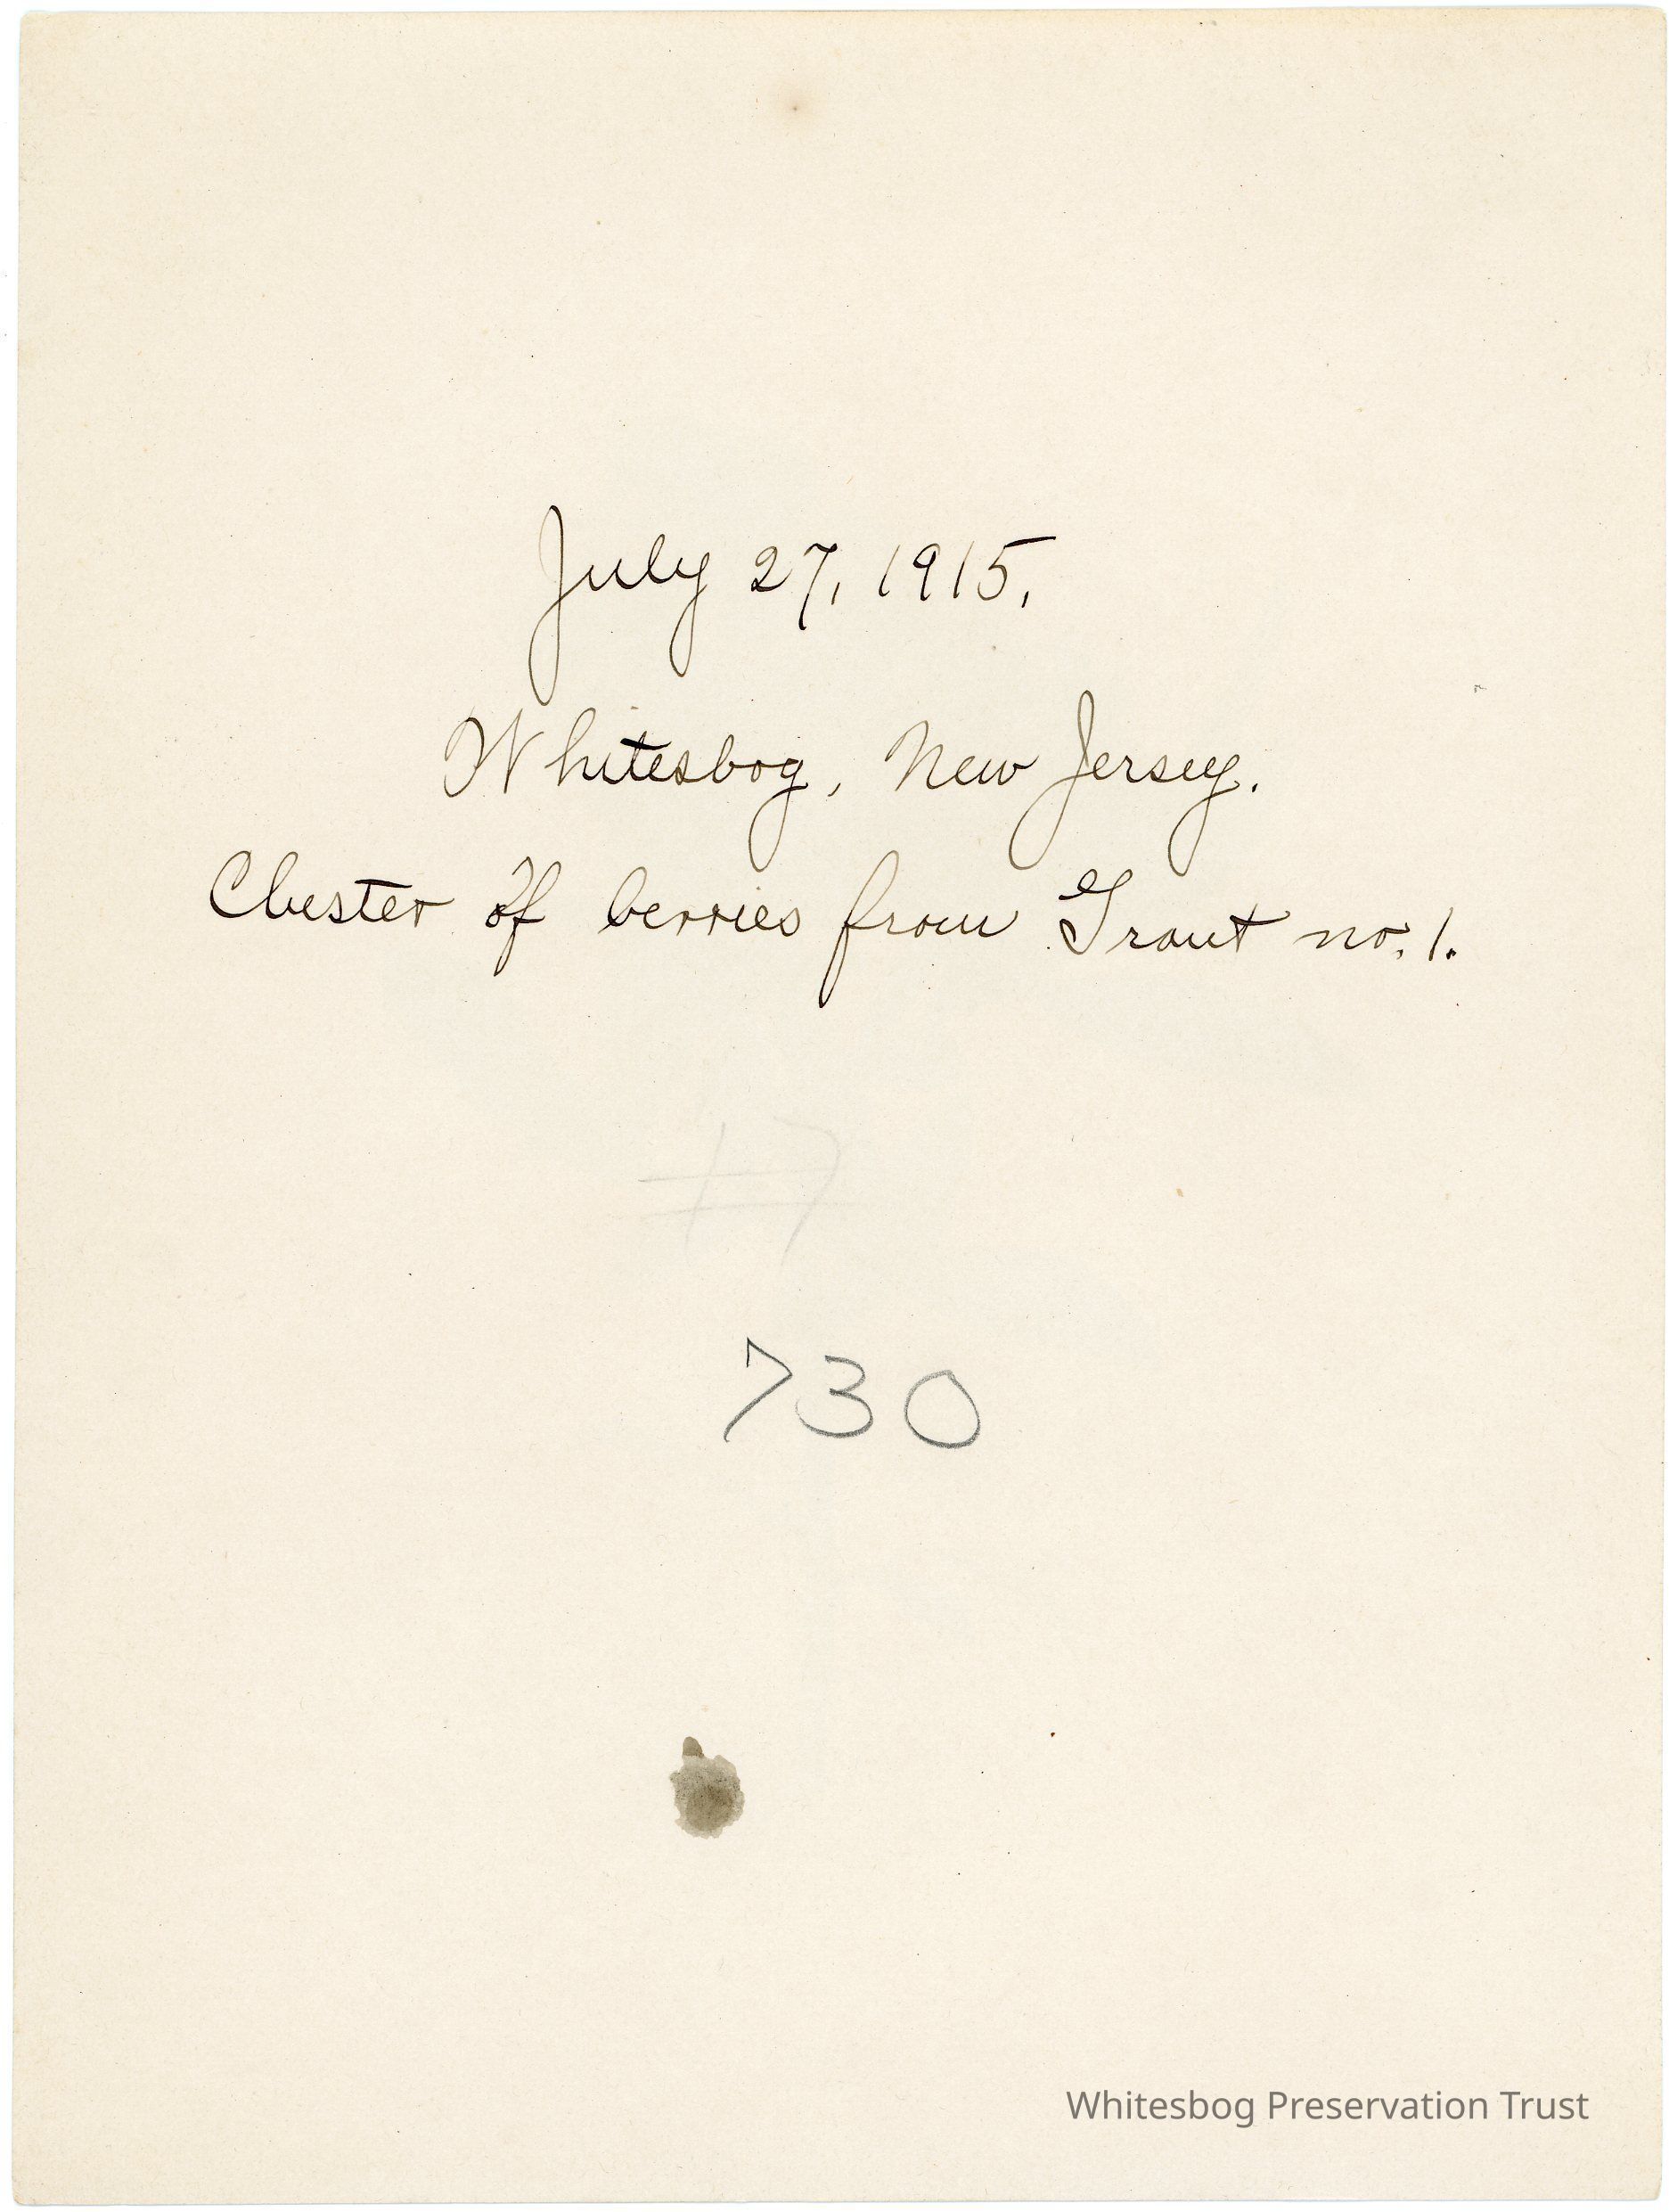 July 27, 1915.
Whitesbog, New Jersey.
Cluster of berries from Grant no. 1.
#7
730
Whitesbog Preservation Trust